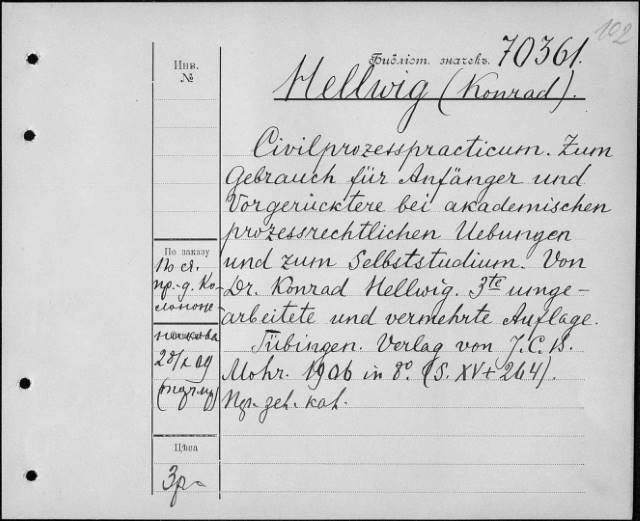 102
Библіот. значекъ. 70361.
Инв.
№
Hellwig (Konrad).
Civilprozesspracticum. Zum
Gebrauch für Anfänger und
Vorgerücktere bei akademischen
prozessrechtlichen Uebungen
und zum Selbststudium. Von
Dr. Konrad Hellwig. 3te umge-
arbeitete und vermehrte Auflage.
Tübingen. Verlag von J. C. B.
Mohr. 1906 in 8°. (S. XV + 264).
По заказу
пр.-д. Ко-
Цѣна
3р